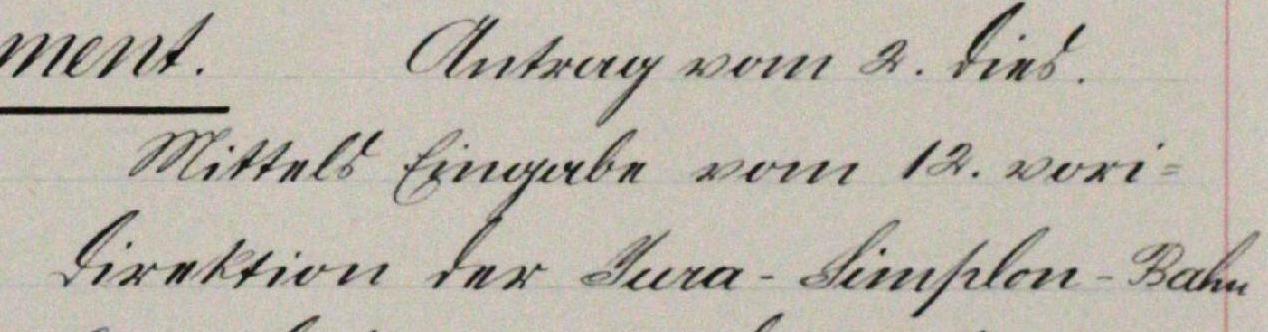 ment. Antrag vom 2. dies.
Mittels Eingabe vom 12. vori=
Direktion der Jura-Simplon-Bahn